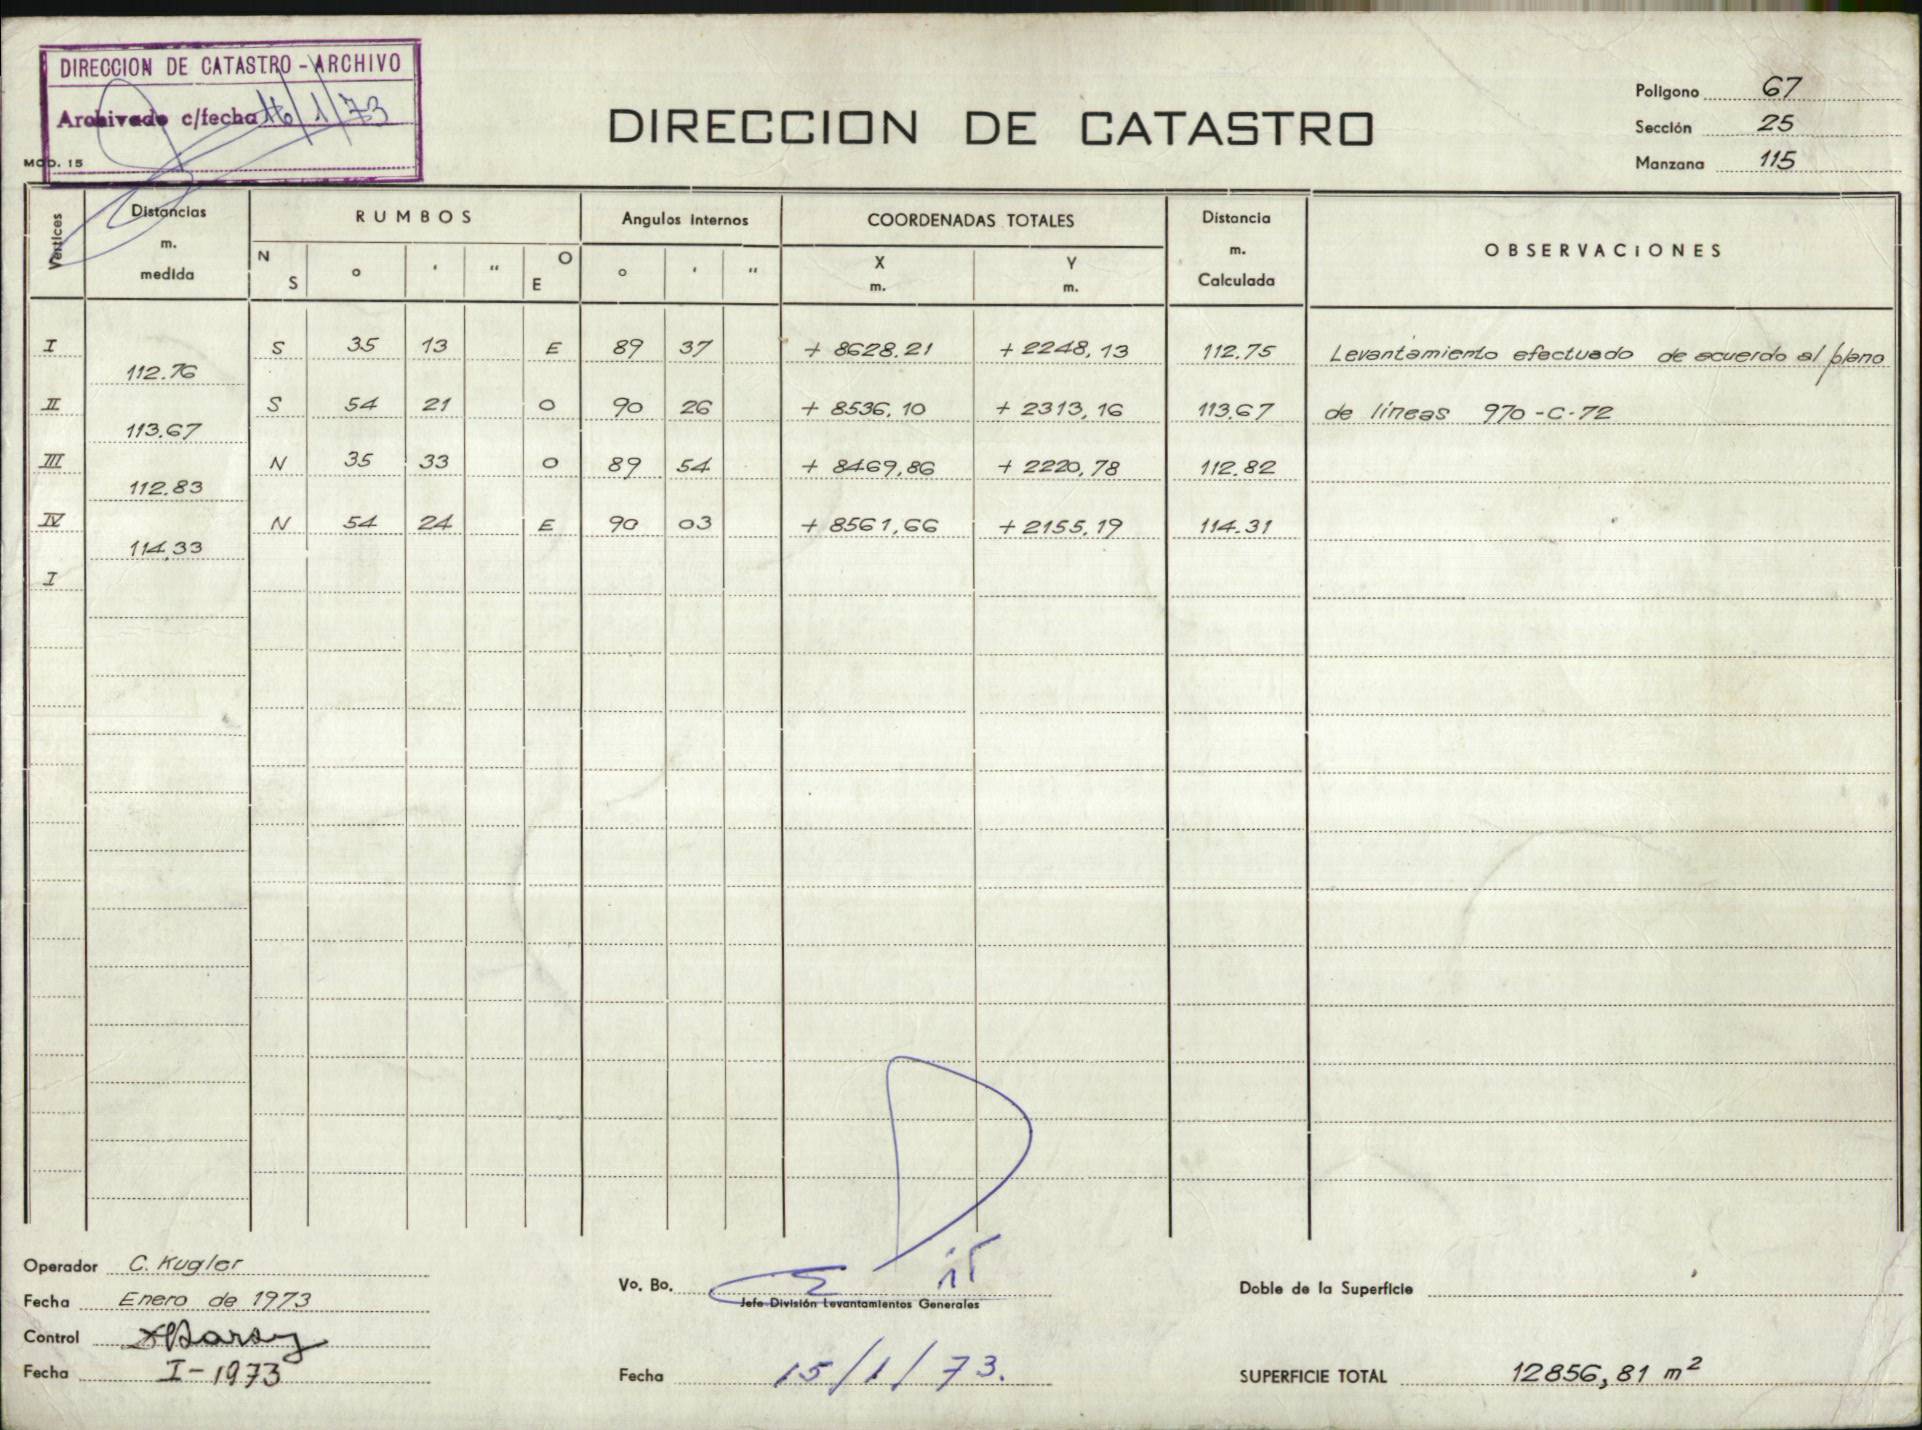 DIRECCION DE CATASTRO - ARCHIVO
Archivado c/fecha 16/1/73
MOD. 15
DIRECCION DE CATASTRO
Poligono 67
Sección 25
Manzana 115
Vertices
Distancias m. medida
RUMBOS
N S ° ' " O E
Angulos internos
° ' "
COORDENADAS TOTALES
X m. Y m.
Distancia m. Calculada
OBSERVACIONES
I S 35 13 E 89 37 + 8628,21 + 2248,13 112.75 Levantamiento efectuado de acuerdo al plano
112.76
II S 54 21 O 90 26 + 8536,10 + 2313,16 113.67 de líneas 970-C-72
113.67
III N 35 33 O 89 54 + 8469,86 + 2220,78 112.82
112.83
IV N 54 24 E 90 03 + 8561,66 + 2155,19 114.31
114.33
I
Operador C. Kugler
Fecha Enero de 1973
Control
Fecha I-1973
Vo. Bo.
Jefe División Levantamientos Generales
Fecha 15/1/73.
Doble de la Superficie
SUPERFICIE TOTAL 12856,81 m²